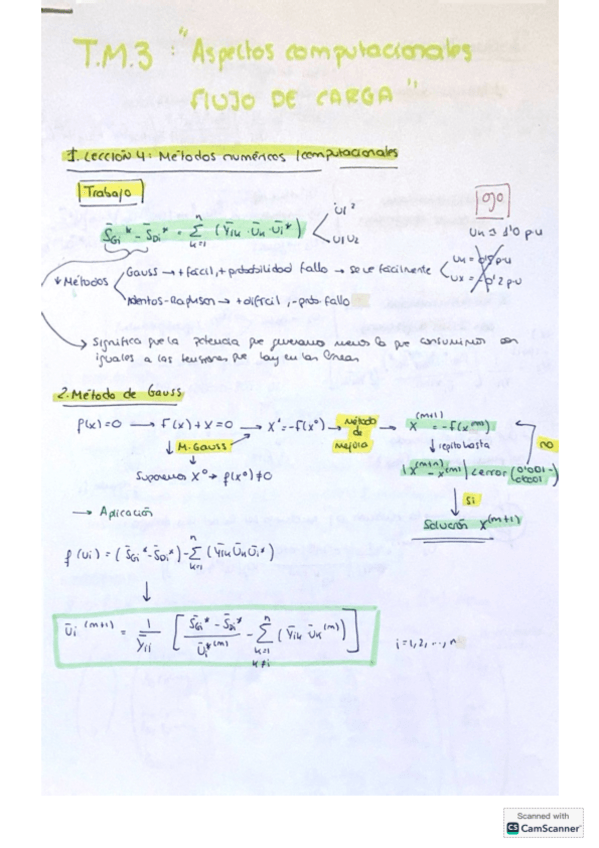 T.M.3 : "Aspectos computacionales
FLUJO DE CARGA"
1. Lección 4: Métodos numéricos / computacionales
Trabajo
S̄Gi* - S̄Di* = Σ(k=1..n) (Ȳik · Ūk · Ūi*)
U1²
U1U2
ojo
Uk ≈ 1'0 pu
Uk = 0'5 pu
Ux = -0'2 pu
Métodos
Gauss → + fácil, + probabilidad fallo → se ve fácilmente
-Raphson → + difícil, - prob. fallo
Significa que la potencia que generamos menos la que consumimos son
iguales a las tensiones que hay en las líneas
2. Método de Gauss
f(x)=0 → f(x)+x=0 → x'=-f(x⁰) → Método de mejora → x^(m+1) = -f(x^(m))
M. Gauss
↓ repito hasta
no
Suponemos x⁰ → f(x⁰)≠0
|x^(m+1) - x^(m)| < error (0'001 -
0'0001
si
→ Aplicación
Solución x^(m+1)
f(Ui) = (S̄Gi* - S̄Di*) - Σ(k=1..n) (Ȳik Ūk Ūi*)
Ūi^(m+1) = 1/Ȳii [ (S̄Gi* - S̄Di*)/Ūi*^(m) - Σ(k=1..n, k≠i) (Ȳik Ūk^(m)) ]
i = 1, 2, ..., n
Scanned with
CS CamScanner